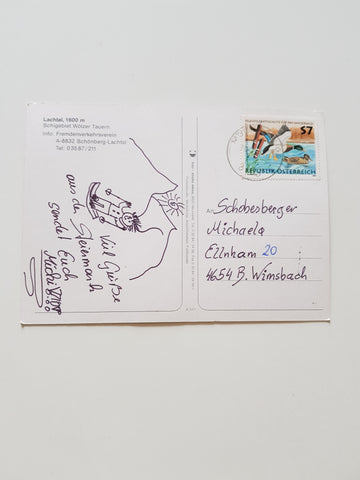 Lachtal, 1600 m
Schigebiet Wölzer Tauern
Info: Fremdenverkehrsverein
A-8832 Schönberg-Lachtal
Tel. 0 35 87 / 211
Viel Grüße
aus der Steiermark
sendet Euch
S7
REPUBLIK ÖSTERREICH
Schobesberger
Michaela
Ellnham 20
4654 B. Wimsbach